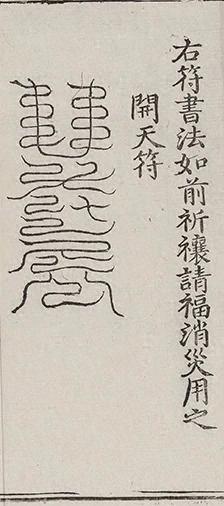 右符書法如前祈禳請福消災用之
開天符